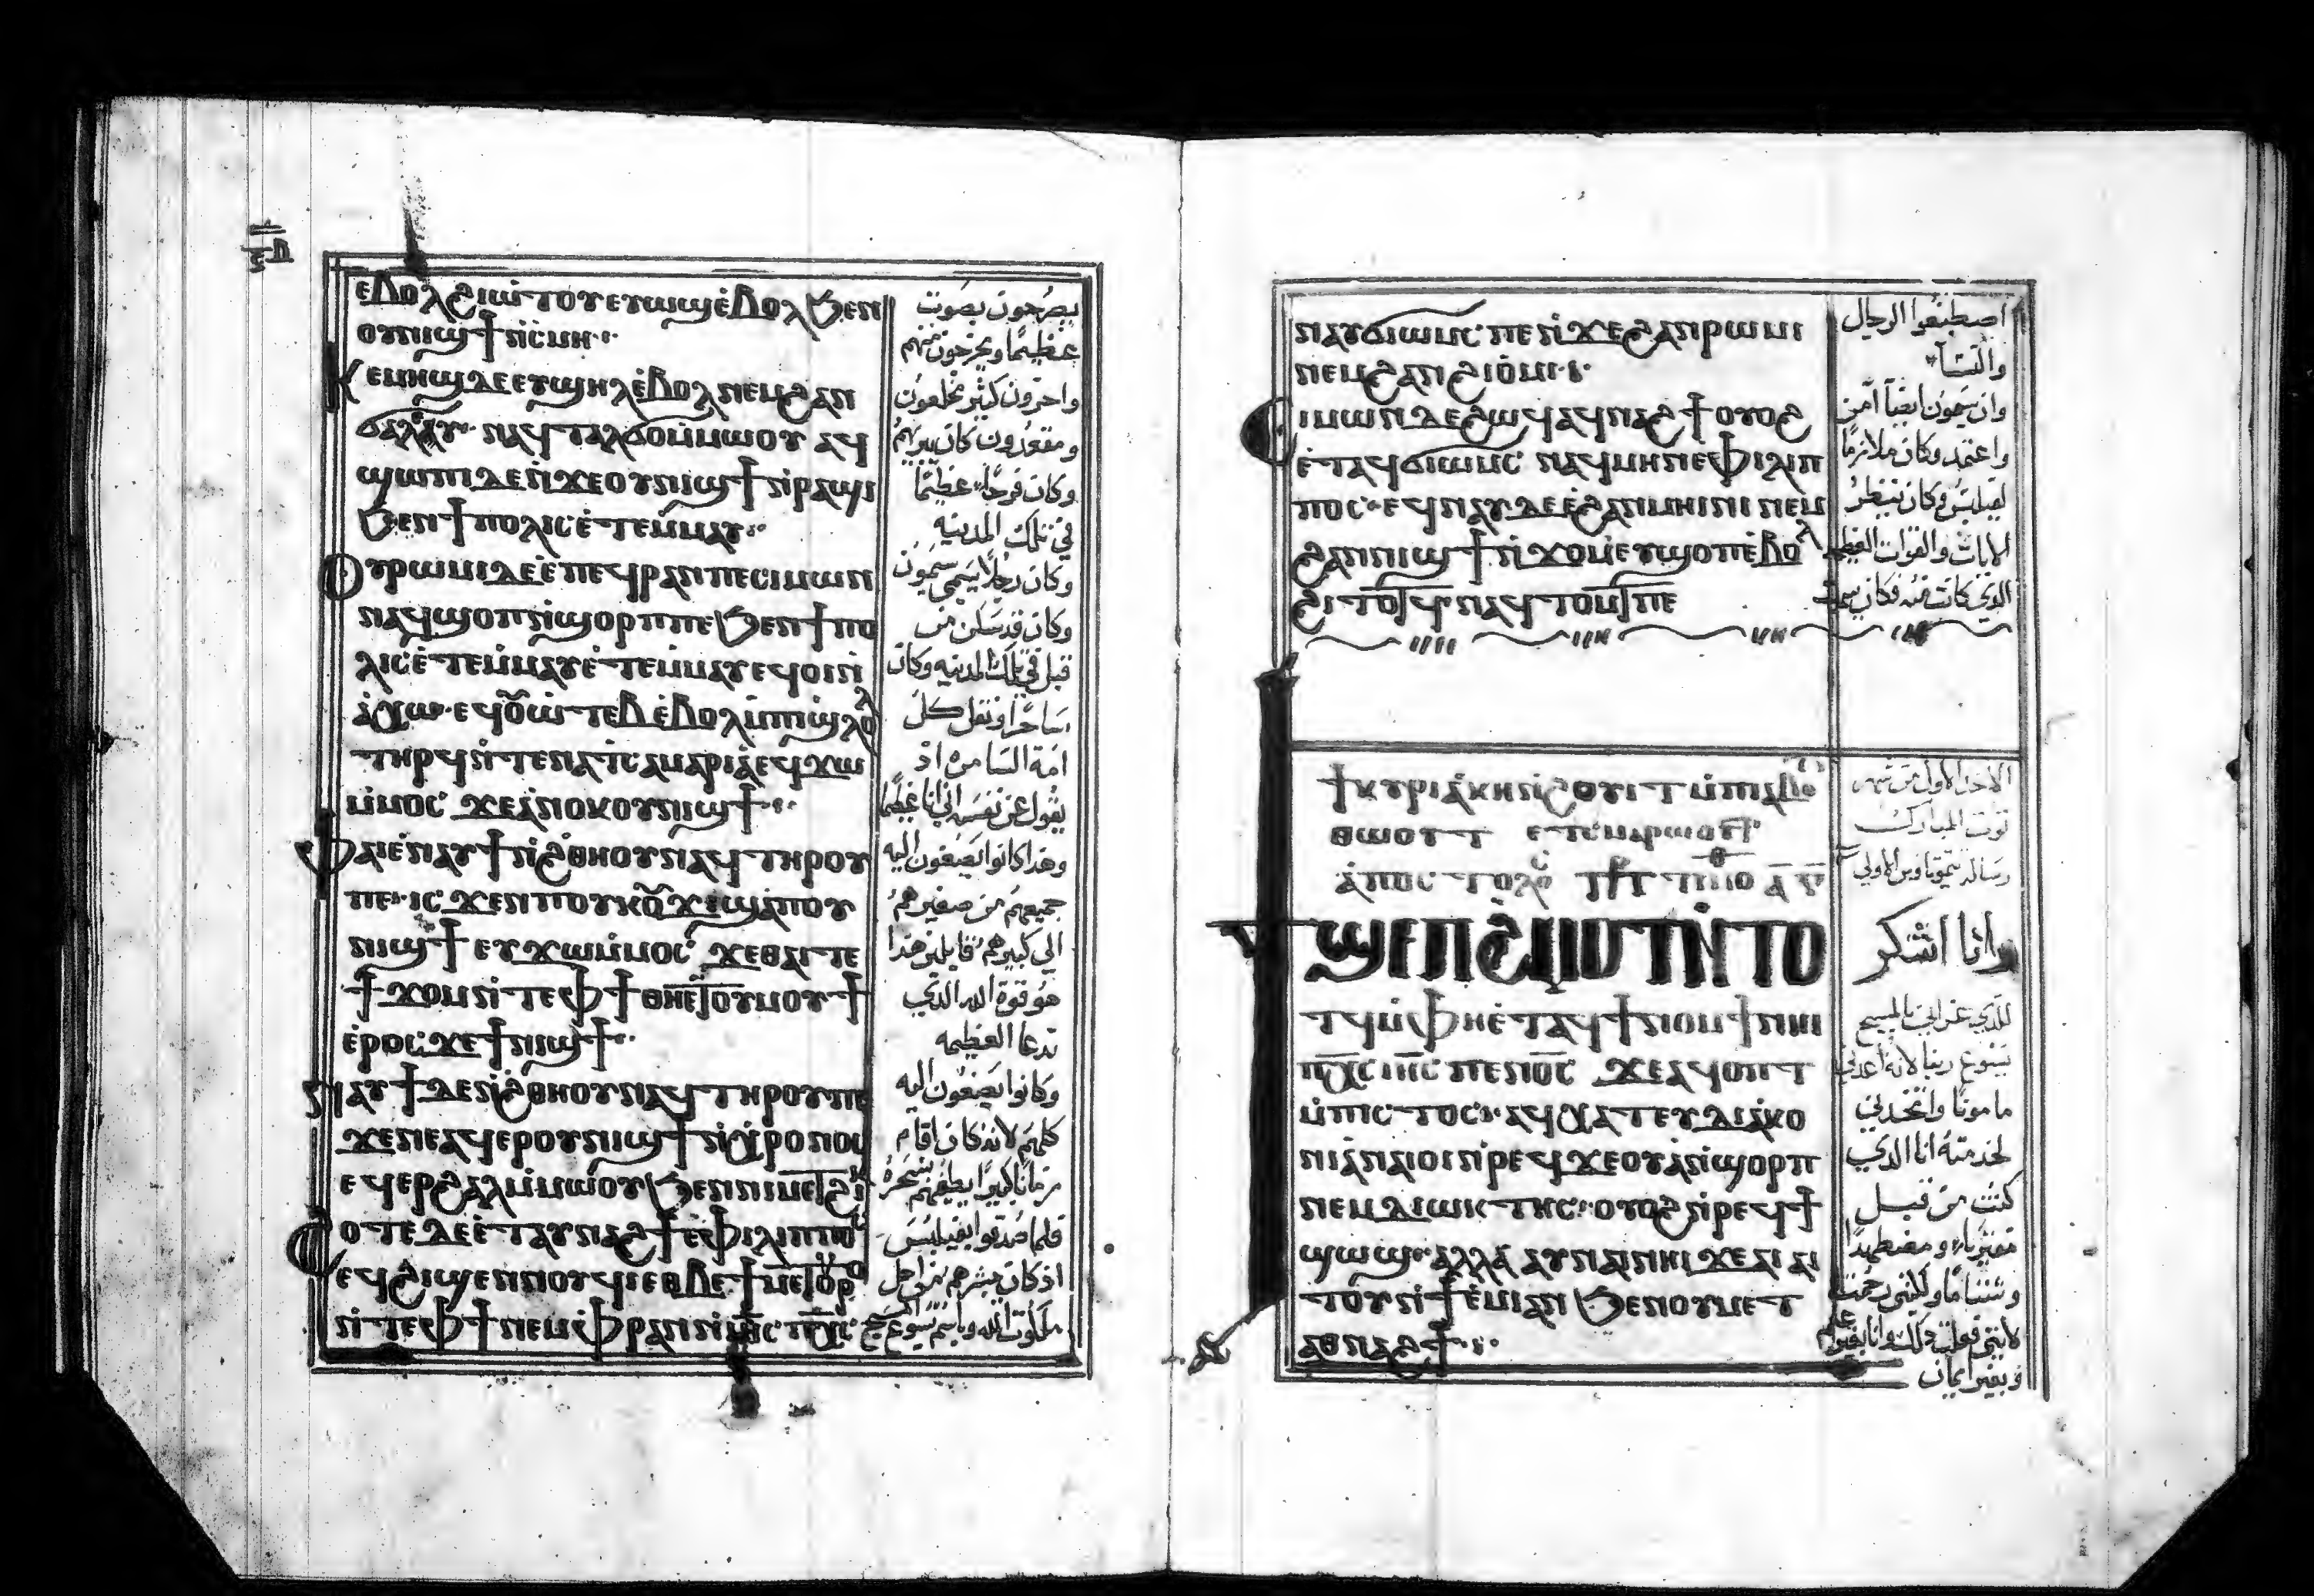 ⲉⲃⲟⲗϩⲓⲱⲧⲟⲩⲉⲩⲱϣⲉ̀ⲃⲟⲗϧⲉⲛ
ⲟⲩⲛⲓϣϯⲛ̀ⲥ̀ⲙⲏ
ⲕⲉⲙⲏϣⲇⲉⲉⲩϣⲏⲗⲉ̀ⲃⲟⲗⲛⲉⲙϩⲁⲛ
ϭⲁⲗⲁⲩ ⲛⲁϥⲧⲁⲗϭⲟⲙ̀ⲙⲱⲟⲩ ⲁϥ
ϣⲱⲡⲓⲇⲉⲛ̀ϫⲉⲟⲩⲛⲓϣϯⲛ̀ⲣⲁϣⲓ
ϧⲉⲛϯⲡⲟⲗⲓⲥⲉ̀ⲧⲉⲙ̀ⲙⲁⲩ
ⲟⲩⲣⲱⲙⲓⲇⲉⲉ̀ⲡⲉϥⲣⲁⲛⲡⲉⲥⲓⲙⲱⲛ
ⲛⲁϥϣⲟⲡⲛ̀ϣⲟⲣⲡⲡⲉϧⲉⲛϯⲡⲟ
ⲗⲓⲥⲉ̀ⲧⲉⲙ̀ⲙⲁⲩⲉ̀ⲧⲉⲙ̀ⲙⲁⲩⲉϥⲟⲓⲛ̀
ⲁ̀ⲭⲱ ⲉϥⲑⲱ̀ⲧⲉⲃ ⲉ̀ⲃⲟⲗⲙ̀ⲡⲓϣ̀ⲗⲟⲗ
ⲧⲏⲣϥⲛ̀ⲧⲉⲛⲁϯⲥⲁⲙⲁⲣⲓⲁ̀ⲉϥϫⲱ
ⲙ̀ⲙⲟⲥ ϫⲉⲁ̀ⲛⲟⲕⲟⲩⲛⲓϣϯ
ⲫⲁⲓⲉ̀ⲛⲁⲩϯⲛ̀ϩⲑⲏⲟⲩⲛⲁϥⲧⲏⲣⲟⲩ
ⲡⲉ ⲓⲥϫⲉⲛⲡⲟⲩⲕⲟⲩϫⲓϣⲁ̀ⲡⲟⲩ
ⲛⲓϣϯ ⲉⲩϫⲱⲙ̀ⲙⲟⲥ ϫⲉⲑⲁⲓⲧⲉ
ϯϫⲟⲙⲛ̀ⲧⲉⲫϯⲑⲏⲉⲧⲟⲩⲙⲟⲩϯ
ⲉ̀ⲣⲟⲥϫⲉϯⲛⲓϣϯ
ⲛⲁⲩϯⲇⲉⲛ̀ϩⲑⲏⲟⲩⲛⲁϥⲧⲏⲣⲟⲩⲡⲉ
ϫⲉⲛⲉⲁϥⲉⲣⲟⲩⲛⲓϣϯⲛ̀ⲭ̀ⲣⲟⲛⲟⲥ
ⲉϥⲉⲣϩⲁⲗⲙ̀ⲙⲱⲟⲩϧⲉⲛⲛⲓⲙⲉⲧϩⲓⲕ
ϩⲟⲧⲉⲇⲉⲉ̀ⲧⲁⲩⲛⲁϩϯⲉ̀ⲫⲓⲗⲓⲡⲡⲟⲥ
ⲉϥϩⲓϣⲉⲛⲛⲟⲩϥⲓⲉⲑⲃⲉϯⲙⲉⲧⲟⲩⲣⲟ
ⲛ̀ⲧⲉⲫϯⲛⲉⲙⲫ̀ⲣⲁⲛⲛ̀ⲓⲏⲥ ⲡⲭⲥ
يصرخون بصوت
عظيما ويخرجون منهم
واخرون كثير مخلعون
ومقعدون كان يبريهم
وكان فرحًا عظيمًا
في تلك المدينه
وكان رجلا يسمي سيمون
وكان قد سكن من
قبل في تلك المدينه وكان
ساحرًا وتقل كل
امة السامره اذ
يقول عن نفسه اني انا عظيما
وهذا كانوا يصغون اليه
جميعهم من صغيرهم
الي كبيرهم قايلين هذا
هو قوة الله الذي
تدعا العظيمه
وكانوا يصغون اليه
كلهم لانه كان اقام
زمانًا كبيرًا يطغيهم بسحره
فلما صدقوا بفيلبس
اذ كان يبشرهم من اجل
ملكوت الله وباسم يسوع المسيح
ⲛⲁⲩϭⲓⲱⲙⲥ ⲡⲉⲛ̀ϫⲉϩⲁⲛⲣⲱⲙⲓ
ⲛⲉⲙϩⲁⲛϩⲓⲟ̀ⲙⲓ
ⲥⲓⲙⲱⲛⲇⲉϩⲱϥⲁϥⲛⲁϩϯⲟⲩⲟϩ
ⲉ̀ⲧⲁϥϭⲓⲱⲙⲥ ⲛⲁϥⲙⲏⲛⲉⲫⲓⲗⲓⲡ
ⲡⲟⲥ ⲉϥⲛⲁⲩⲇⲉⲉ̀ϩⲁⲛⲙⲏⲓⲛⲓ ⲛⲉⲙ
ϩⲁⲛⲛⲓϣϯⲛ̀ϫⲟⲙ̀ⲉⲩϣⲟⲡⲉ̀ⲃⲟⲗ
ϩⲓⲧⲟⲧϥ ⲛⲁϥⲧⲟⲙⲧⲡⲉ
اصطبغوا الرجال
والنسآ
وان سيمون ايضًا آمن
واعتمد وكان ملازمًا
لفيلبس وكان ينظر
الايات والقوات العظيمه
الذي كانت منه فكان يبهت
ϯⲕⲩⲣⲓⲁ̀ⲕⲏⲛ̀ϩⲟⲩⲓⲧ ⲙ̀ⲡⲓⲁⲃⲟⲧ
ⲑⲱⲟⲩⲧ ⲉⲧⲥⲙⲁⲣⲱⲟⲩⲧ
ⲁ̀ⲡⲟⲥⲧⲟⲗⲟⲥ ⲡⲣⲥ ⲧⲓⲙⲟⲑ ⲁ
ϯϣⲉⲡϩ̀ⲙⲟⲧⲛ̀ⲧⲟ
ⲧϥⲙ̀ⲫⲏⲉ̀ⲧⲁϥϯⲛⲟⲙϯⲛⲏⲓ
ⲡⲭⲥ ⲓⲏⲥ ⲡⲉⲛⲟⲥ ϫⲉⲁϥⲟⲡⲧ
ⲙ̀ⲡⲓⲥⲧⲟⲥ ⲁϥⲭⲁⲧⲉⲩⲇⲓⲁ̀ⲕⲟ
ⲛⲓⲁ̀ⲛⲁⲓⲟⲓⲛ̀ⲣⲉϥϫⲉⲟⲩⲁ̀ⲛ̀ϣⲟⲣⲡ
ⲛⲉⲙⲇⲓⲱⲕⲧⲏⲥ ⲟⲩⲟϩⲛ̀ⲣⲉϥϯ
ϣⲱϣ ⲁⲗⲗⲁ ⲁⲩⲛⲁⲓⲛⲏⲓϫⲉⲁⲓⲁⲓ
ⲧⲟⲩⲛ̀ϯⲉ̀ⲙⲓⲁⲛ ϧⲉⲛⲟⲩⲙⲉⲧ
ⲁⲑⲛⲁϩϯ
الاحد الاول من شهر
توت المبارك
رسالة تيموثاوس الاولي
وانا اشكر
للذي عزاني بالمسيح
يسوع ربنا لانه اعدني
مامونًا واتخذني
لخدمته انا الذي
كنت من قبل
مفتريا ومضطهدا
وشتامًا ولكنني رحمت
لانني فعلت ذلك وانا بغير علم
وبغير ايمان